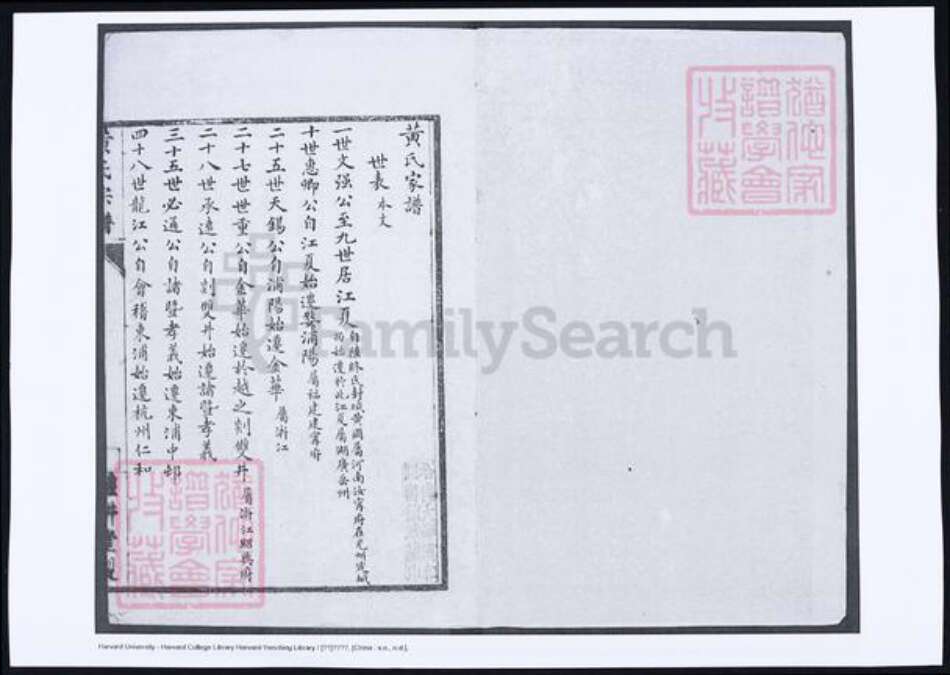 黃氏家譜
世表 本文
一世文强公至九世居江夏 自陸終氏封域黃國屬河南汝寧府在光州定城
始遷於此江夏屬湖廣岳州
十世惠卿公自江夏始遷婺浦陽 屬福建建寧府
二十五世天錫公自浦陽始遷金華 屬浙江
二十七世世重公自金華始遷於越之剡雙井 屬浙江紹興府
二十八世承遠公自剡雙井始遷諸暨孝義
三十五世必通公自諸暨孝義始遷東浦中邨
四十八世龍江公自會稽東浦始遷杭州仁和
黃氏宗譜
FamilySearch
譜學會
收藏
譜學會
收藏
Harvard University - Harvard College Library Harvard-Yenching Library / [??]????, [China : s.n., n.d.],